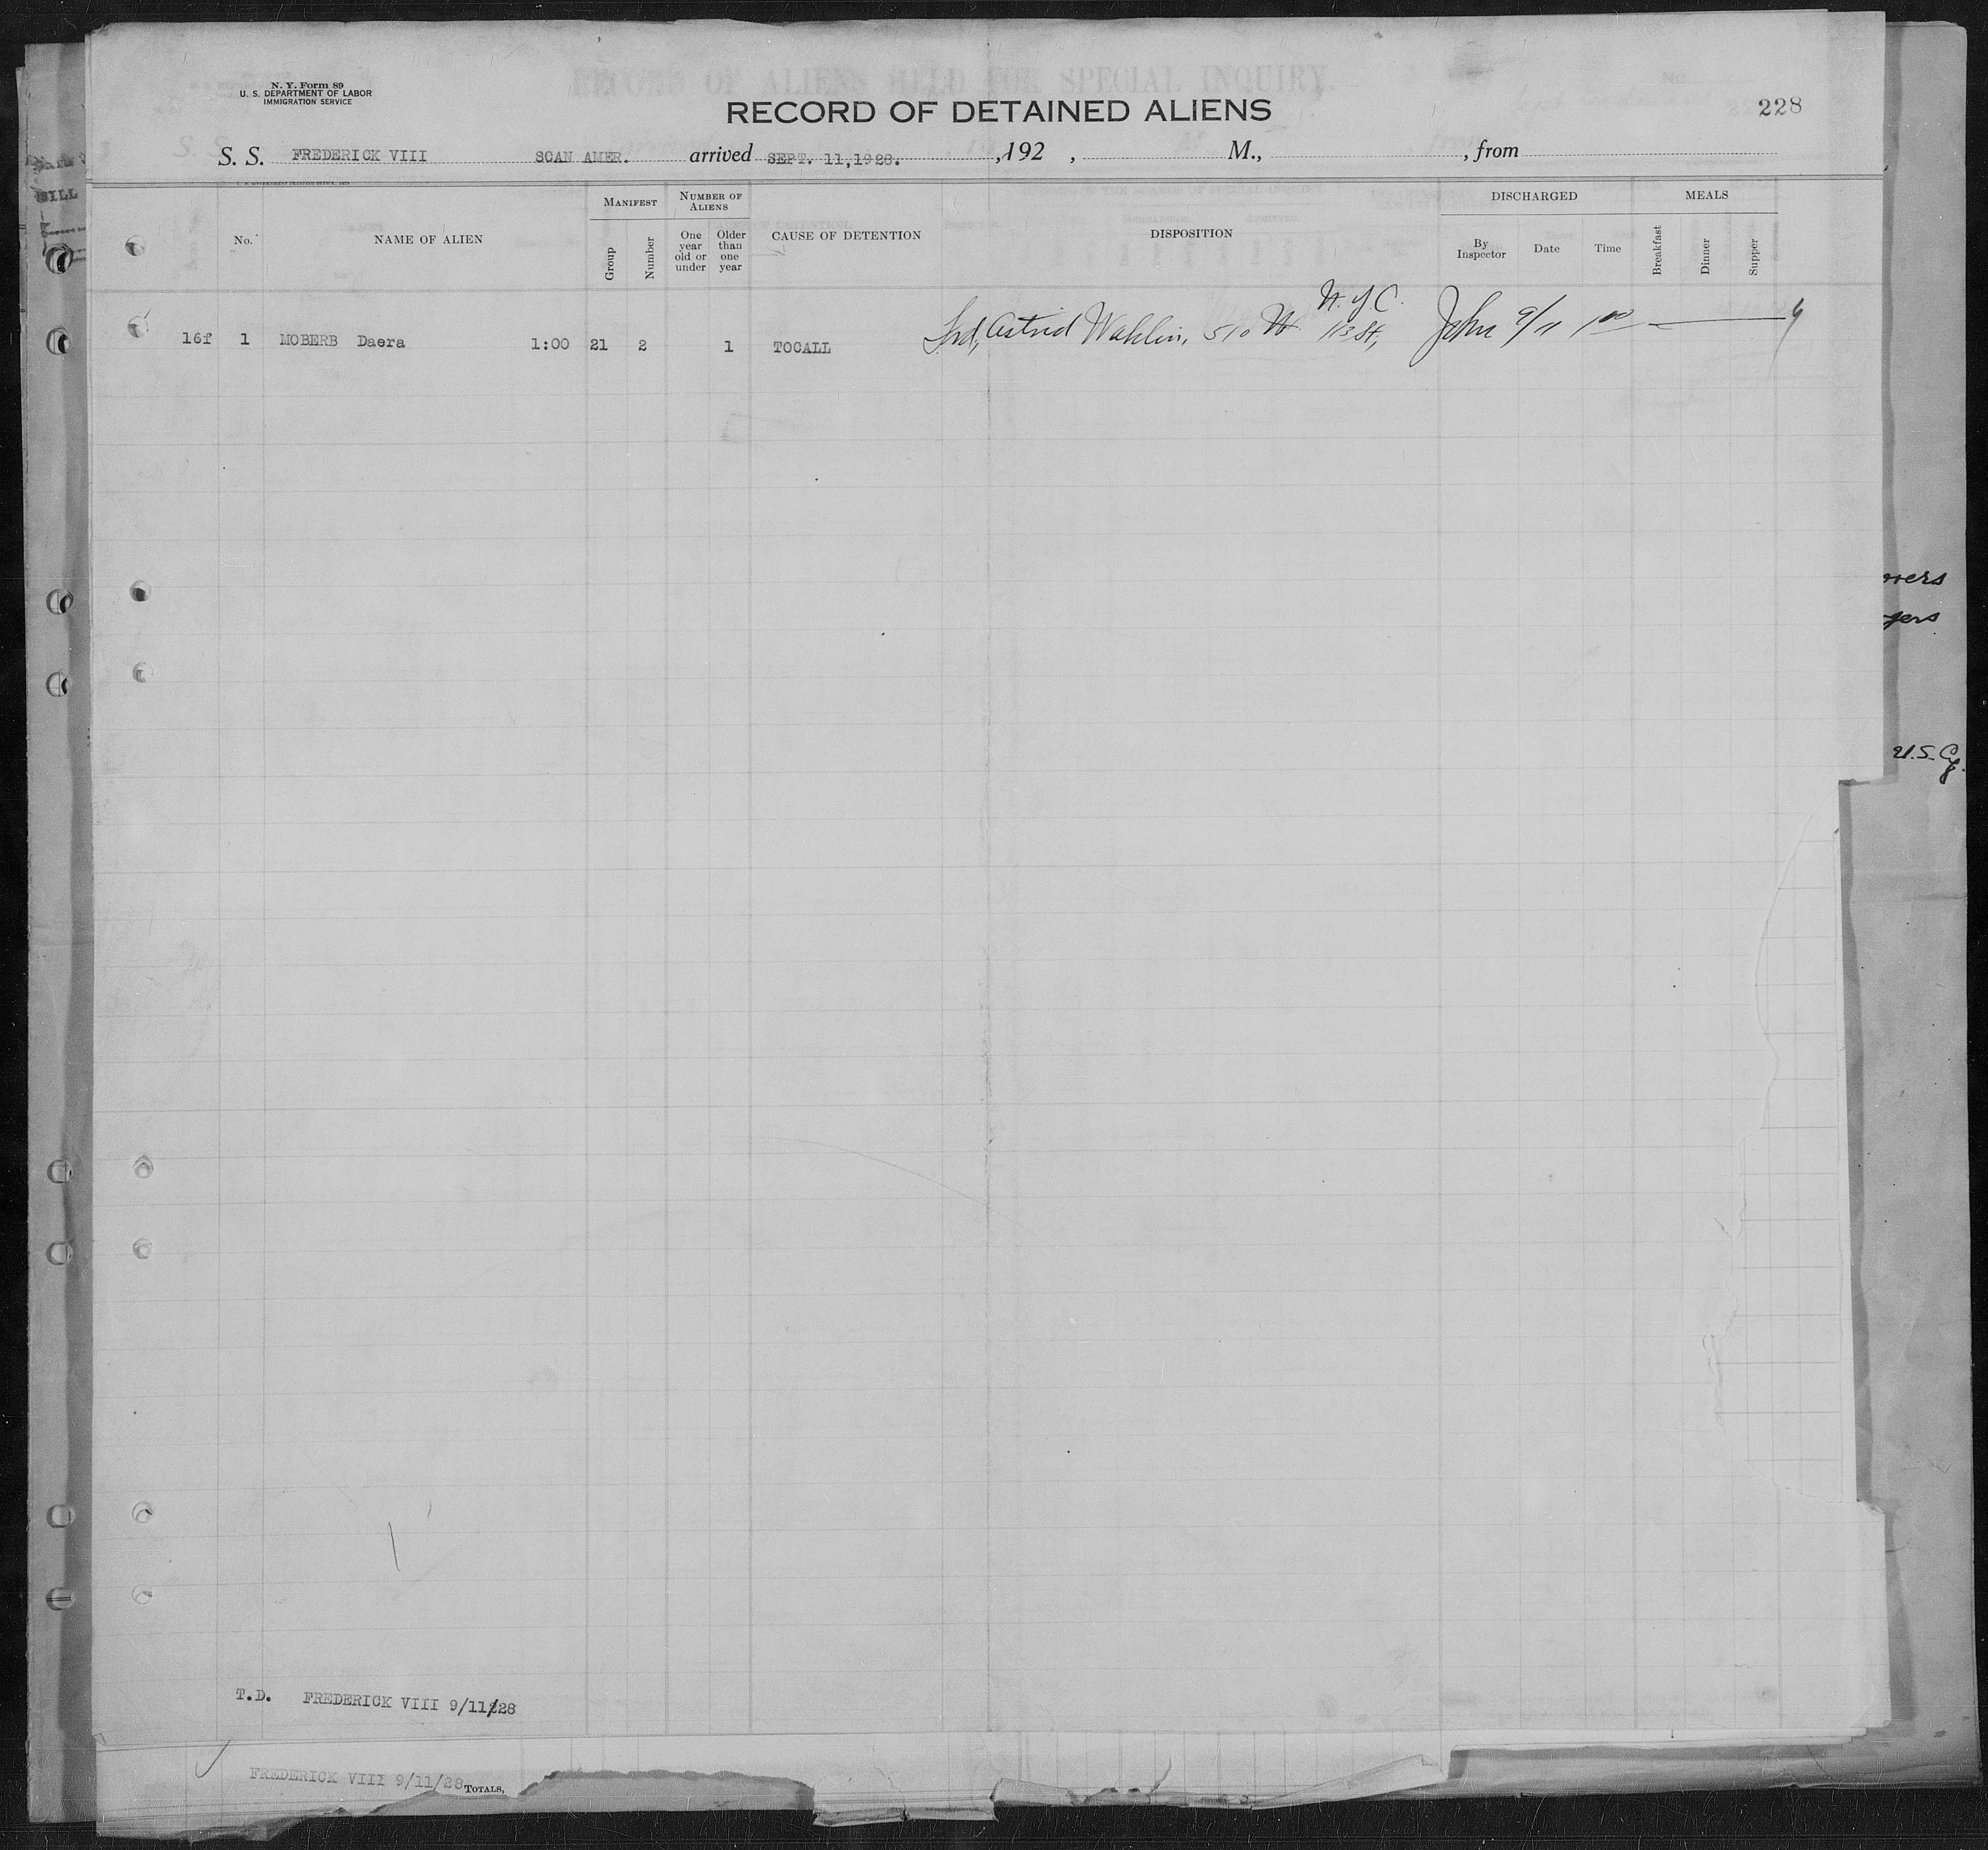 N. Y. Form 89
U. S. DEPARTMENT OF LABOR
IMMIGRATION SERVICE
RECORD OF ALIENS HELD FOR SPECIAL INQUIRY.
RECORD OF DETAINED ALIENS
228
S. S. FREDERICK VIII SCAN AMER. arrived SEPT. 11,1928. ,192 , M., , from
SILL
No. NAME OF ALIEN
MANIFEST
Group Number
NUMBER OF ALIENS
One year old or under
Older than one year
CAUSE OF DETENTION
DISPOSITION
DISCHARGED
By Inspector Date Time
MEALS
Breakfast Dinner Supper
N.Y.C.
16f 1 MOBERB Daera 1:00 21 2 1 TOCALL Frd, Astrid Wahlin, 510 W. 113 St, John 9/11 1 00
U.S. C
T.D. FREDERICK VIII 9/11/28
FREDERICK VIII 9/11/28 TOTALS,